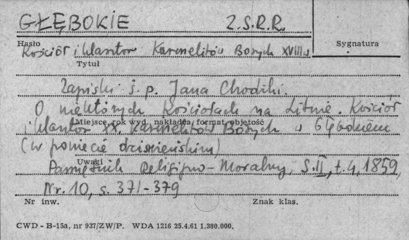 GŁĘBOKIE Z.S.R.R.
Hasło Sygnatura
Kościół i klasztor Karmelitów Bosych XVIII w
Tytuł
Zapiski ś.p. Jana Chodźki.
O niektórych Kościołach na Litwie. Kościół
Miejsce, rok wyd., nakładca, format, objętość
i klasztor XX. Karmelitów Bosych w Głębokiem
(w powiecie dzisieńskim)
Uwagi
Pamiętnik Religijno-Moralny, S.II, t.4, 1859,
Nr. 10, s. 371-379
Nr inw. Znak klas.
CWD - B-15a, nr 937/ZW/P. WDA 1216 25.4.61 1.200.000.